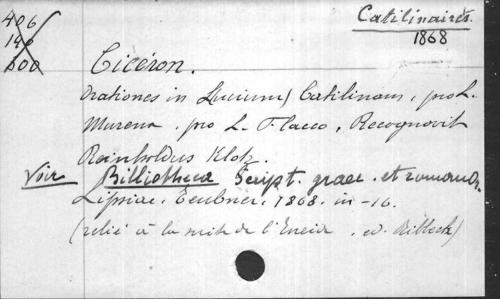 406
140
600
Catilinaires.
1868
Cicéron.
Orationes in Lucium Catilinam, pro L.
Murena, pro L. Flacco, Recognovit
Reinholdus Klotz.
Voir Bibliotheca Script. graec. et roman.
Lipsiae, Teubner, 1868. in-16.
(relié à la suite de l'Eneide, ed. Ribbeck)